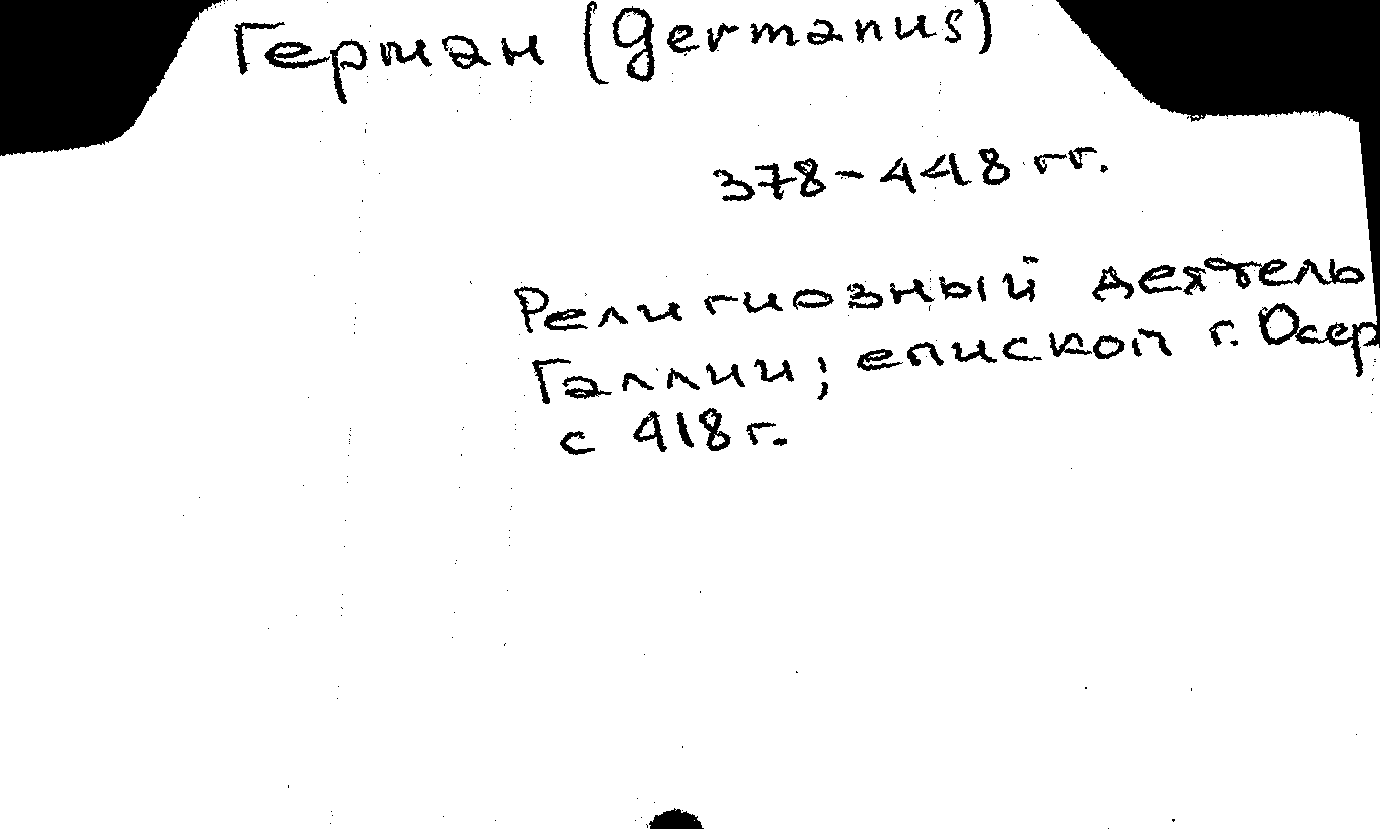 Герман (Germanus)
378-448 гг.
Религиозный деятель
Галлии; епископ г. Осер
с 418 г.